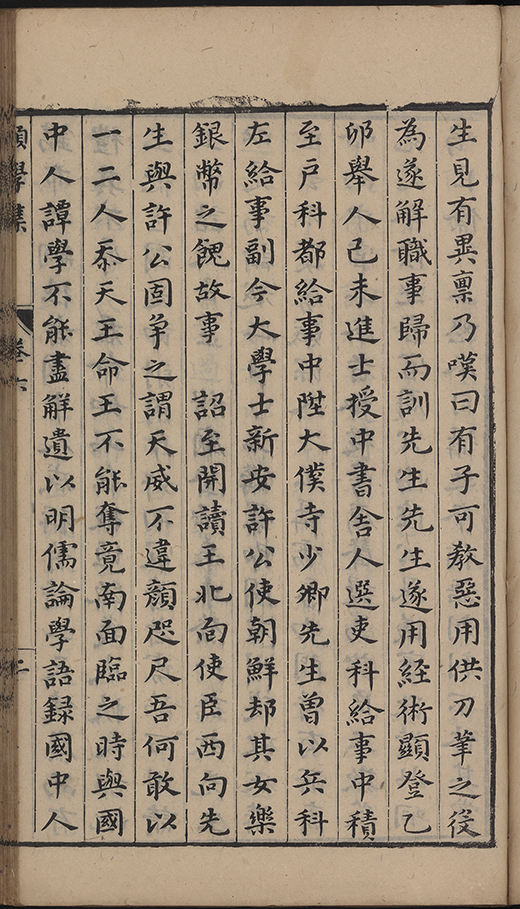 生見有異稟乃嘆曰有子可教惡用供刀筆之役
為遂解職事歸而訓先生先生遂用經術顯登乙
卯舉人己未進士授中書舍人選吏科給事中積
至戶科都給事中陞大僕寺少卿先生曾以兵科
左給事副今大學士新安許公使朝鮮却其女樂
銀幣之餽故事　詔至開讀王北向使臣西向先
生與許公固爭之謂天威不違顏咫尺吾何敢以
一二人忝天王命王不能奪竟南面臨之時與國
中人譚學不能盡解遺以明儒論學語録國中人
願學集
卷六
二